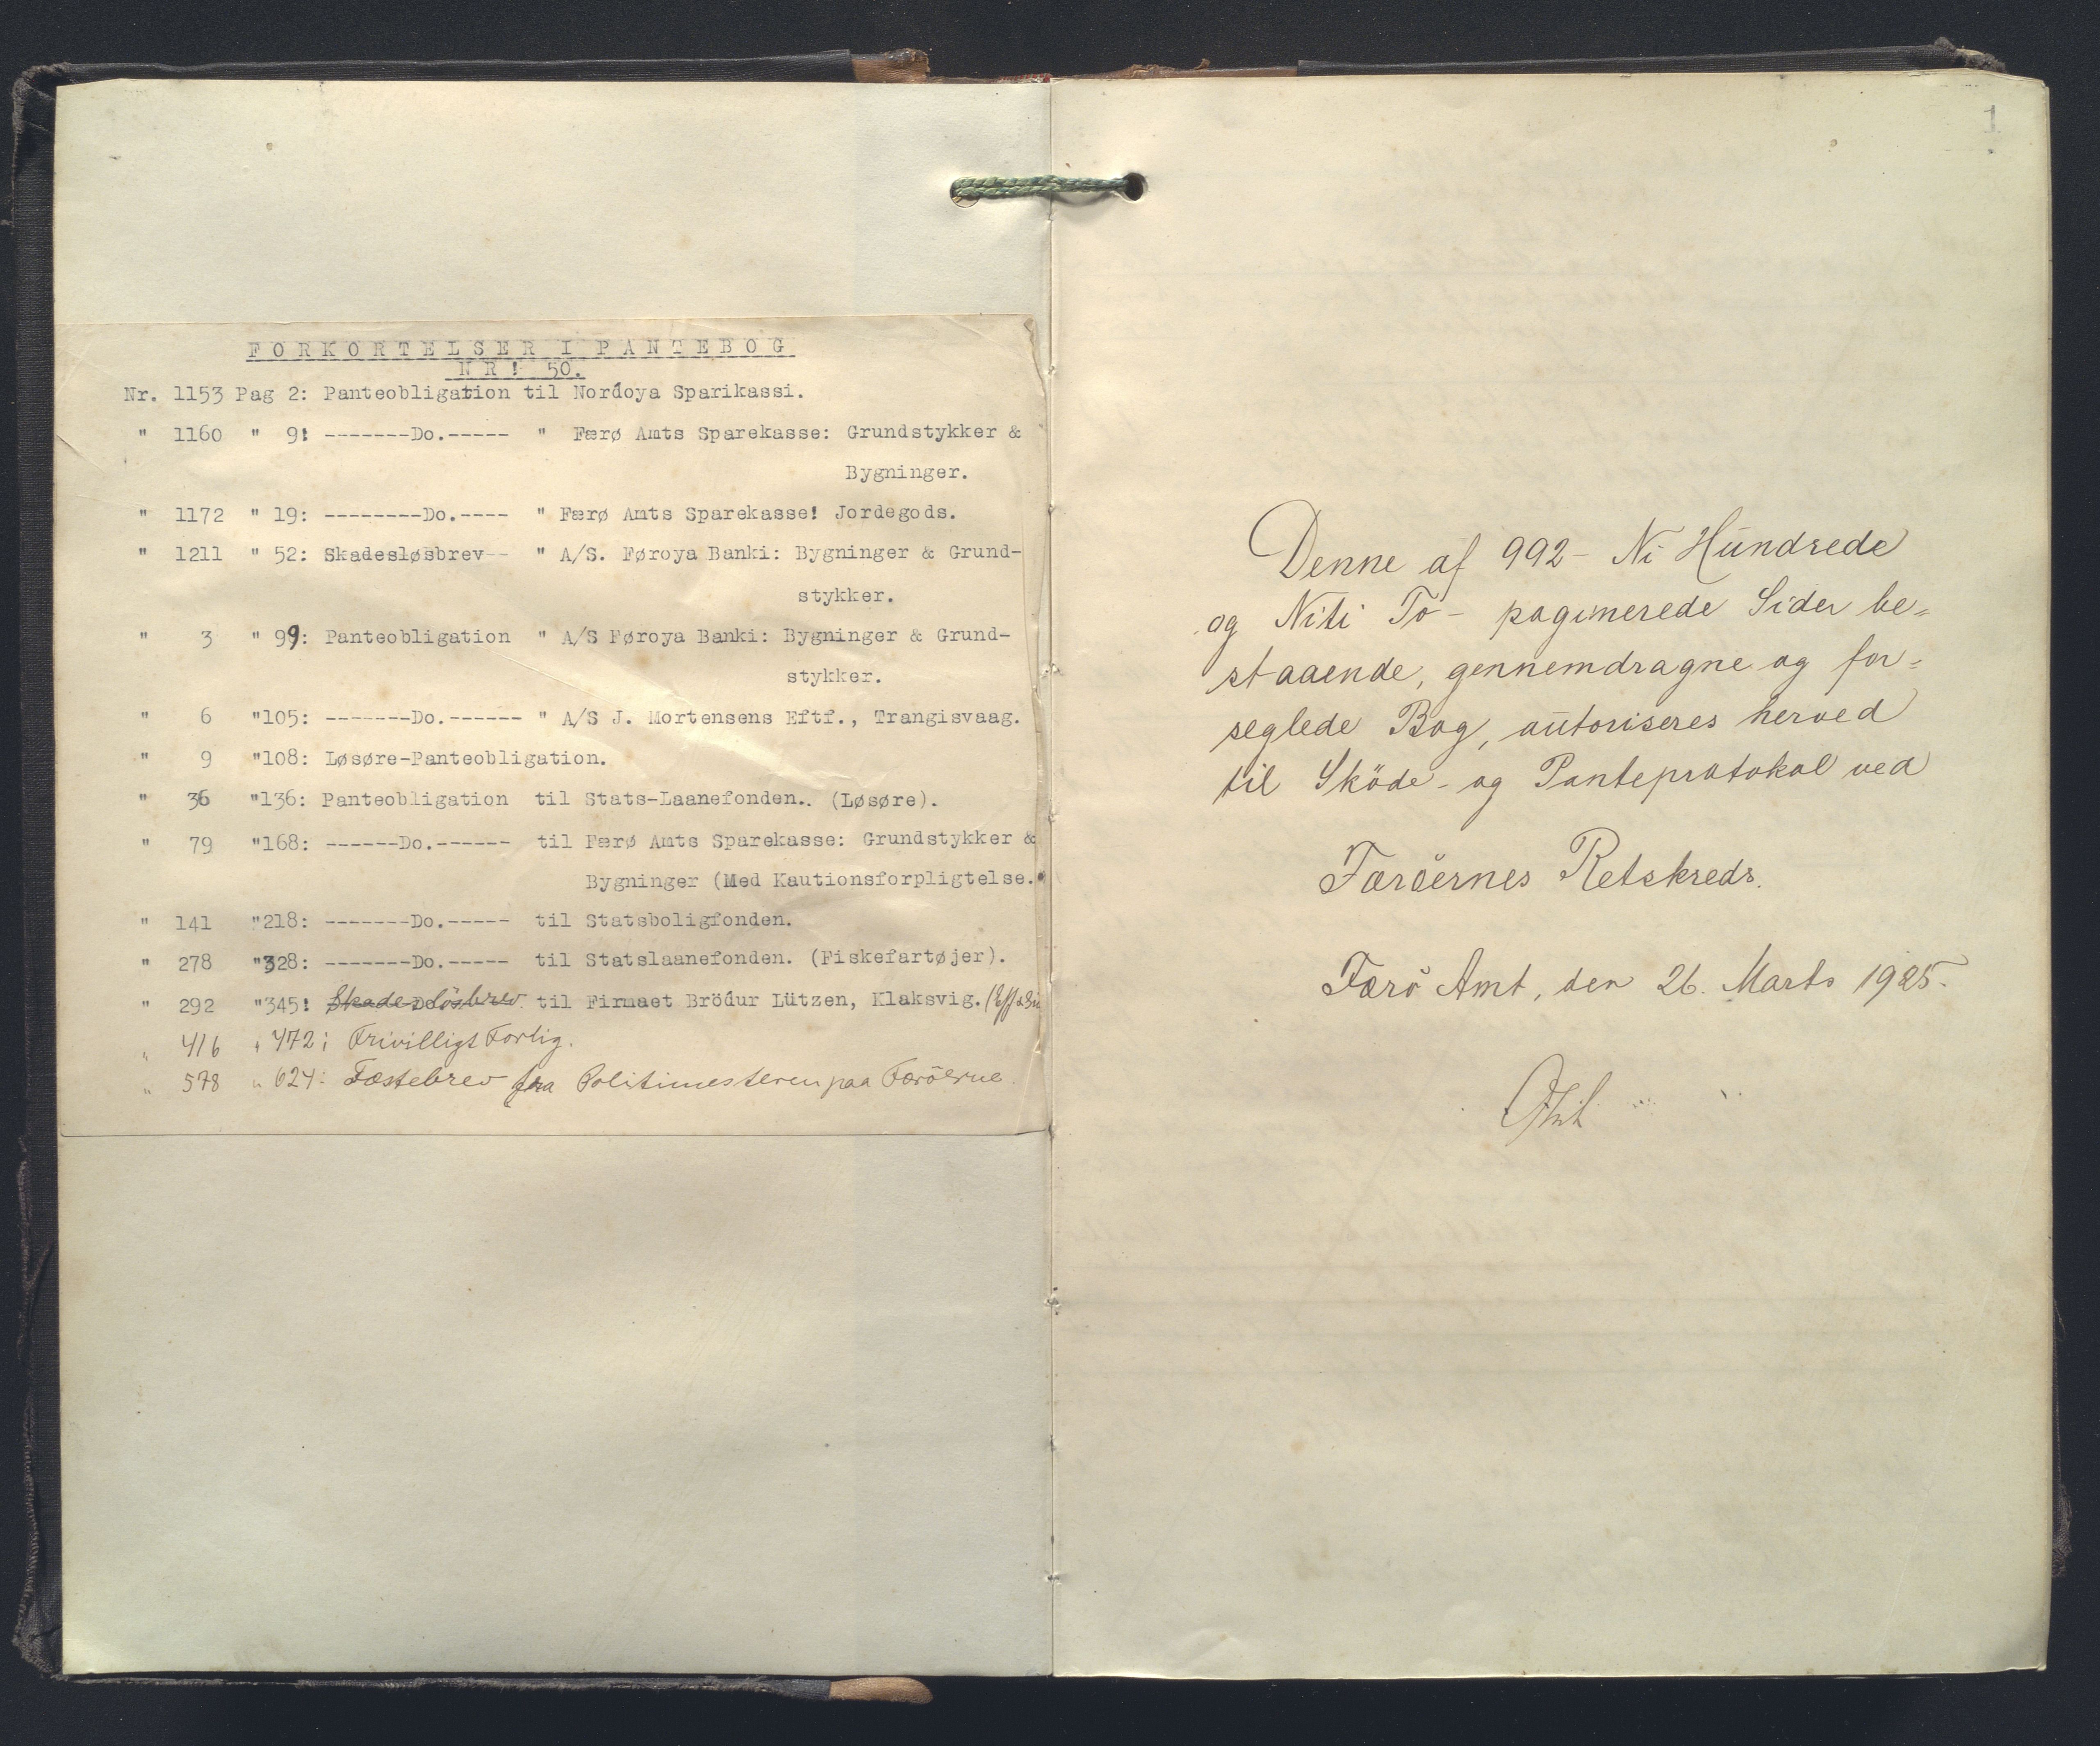 FORKORTELSER I PANTEBOG
NR! 50.
Nr. 1153 Pag 2: Panteobligation til Nordoya Sparikassi.
" 1160 " 9: -------Do.----- " Færø Amts Sparekasse: Grundstykker &
Bygninger.
" 1172 " 19: --------Do.---- " Færø Amts Sparekasse! Jordegods.
" 1211 " 52: Skadesløsbrev-- " A/S. Føroya Banki: Bygninger & Grund-
stykker.
" 3 " 99: Panteobligation " A/S Føroya Banki: Bygninger & Grund-
stykker.
" 6 "105: -------Do.------ " A/S J. Mortensens Eftf., Trangisvaag.
" 9 "108: Løsøre-Panteobligation.
" 36 "136: Panteobligation til Stats-Laanefonden.. (Løsøre).
" 79 "168: ------Do.------ til Færø Amts Sparekasse: Grundstykker &
Bygninger (Med Kautionsforpligtelse.
" 141 "218: -------Do.----- til Statsboligfonden.
" 278 "328: -------Do.----- til Statslaanefonden. (Fiskefartøjer).
" 292 "345! Skadeslösbrev til Firmaet Bröđur Lützen, Klaksvig.
" 416 " 472: Frivilligt Forlig.
" 578 " 624: Fæstebrev fra Politimesteren paa Færöerne.
1
Denne af 992 - Ni Hundrede
og Niti To - paginerede Sider be=
staaende, gennemdragne og for=
seglede Bog, autoriseres herved
til Sköde- og Panteprotokol ved
Færöernes Retskreds.
Færö Amt, den 26. Marts 1925.